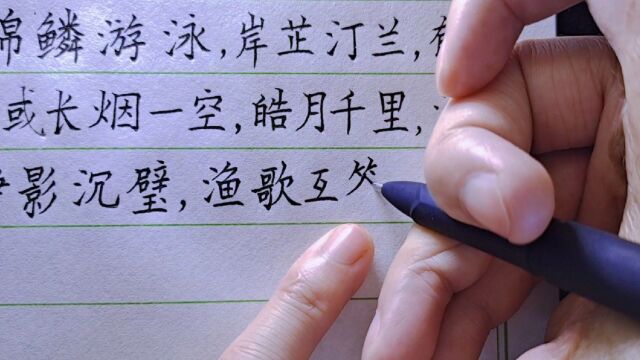 锦鳞游泳,岸芷汀兰,
或长烟一空,皓月千里,
影沉璧,渔歌互